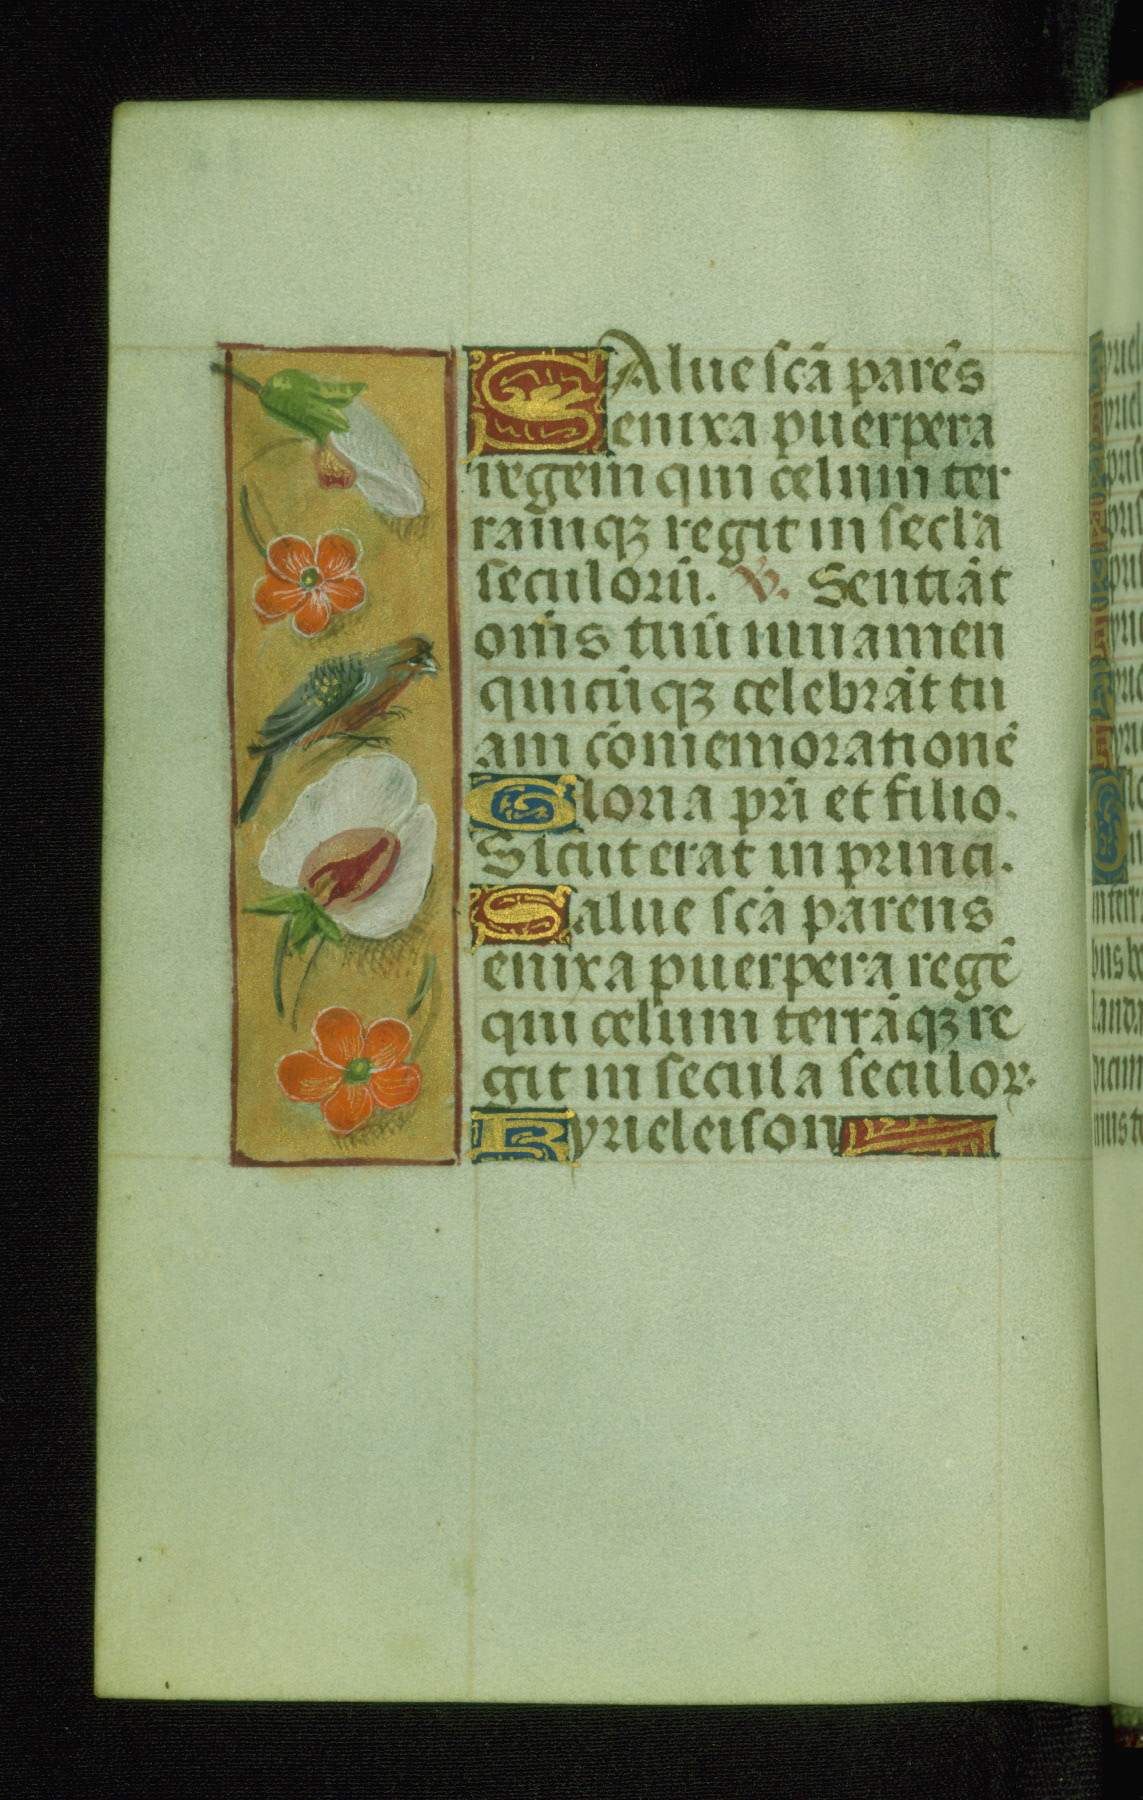 SAlue scā parēs
enixa puerpera
regem qui celum ter
ramqꝫ regit in secla
seculorū. V. Sentiāt
om̄s tuū iuuamen
quicūqꝫ celebrāt tu
am cōmemorationē
Gloria pr̄i et filio.
Sicut erat in princi.
Salue scā parens
enixa puerpera regē
qui celum terrāqꝫ re
git in secula seculor.
Kyrieleison